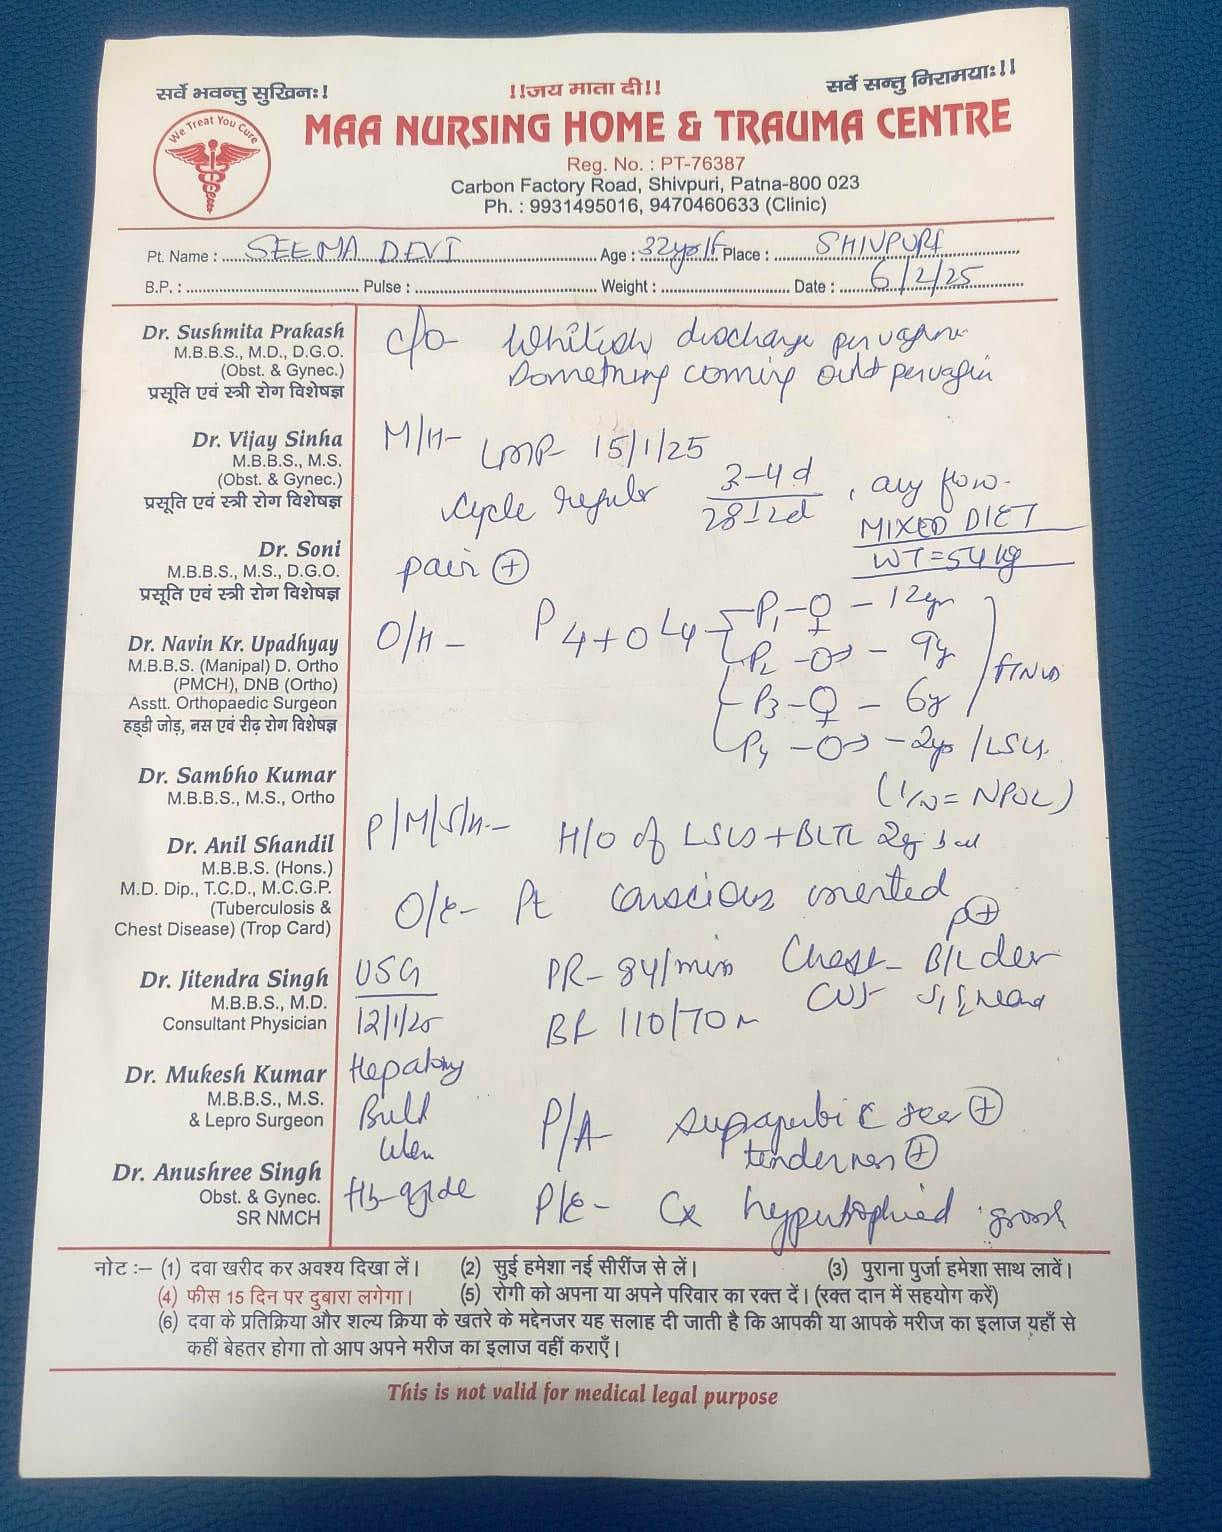 सर्वे भवन्तु सुखिनः!
!!जय माता दी!!
सर्वे सन्तु निरामयाः!!
We Treat You Cure
MAA NURSING HOME & TRAUMA CENTRE
Reg. No. : PT-76387
Carbon Factory Road, Shivpuri, Patna-800 023
Ph. : 9931495016, 9470460633 (Clinic)
Pt. Name : SEEMA DEVI Age : 32yo/F Place : SHIVPURI
B.P. : Pulse : Weight : Date : 6/2/25
Dr. Sushmita Prakash
M.B.B.S., M.D., D.G.O.
(Obst. & Gynec.)
प्रसूति एवं स्त्री रोग विशेषज्ञ
Dr. Vijay Sinha
M.B.B.S., M.S.
(Obst. & Gynec.)
प्रसूति एवं स्त्री रोग विशेषज्ञ
Dr. Soni
M.B.B.S., M.S., D.G.O.
प्रसूति एवं स्त्री रोग विशेषज्ञ
Dr. Navin Kr. Upadhyay
M.B.B.S. (Manipal) D. Ortho
(PMCH), DNB (Ortho)
Asstt. Orthopaedic Surgeon
हड्डी जोड़, नस एवं रीढ़ रोग विशेषज्ञ
Dr. Sambho Kumar
M.B.B.S., M.S., Ortho
Dr. Anil Shandil
M.B.B.S. (Hons.)
M.D. Dip., T.C.D., M.C.G.P.
(Tuberculosis &
Chest Disease) (Trop Card)
Dr. Jitendra Singh
M.B.B.S., M.D.
Consultant Physician
Dr. Mukesh Kumar
M.B.B.S., M.S.
& Lepro Surgeon
Dr. Anushree Singh
Obst. & Gynec.
SR NMCH
c/o Whitish discharge per vagina
Something coming out per vagin
M/H- LMP- 15/1/25
Cycle regular 3-4 d , flow.
28±2d
MIXED DIET
WT = 54 kg
pain +
O/H - P 4+0 L4 P1 - ♀ - 12yr
P2 - ♂ - 9y
P3 - ♀ - 6y
P4 - ♂ - 2yr /LSCS
P/M/S/H - H/O of LSCS + BLTL
O/E- Pt conscious oriented
P+
USG PR- 84/min Chest- B/L
12/1/25 BP 110/70 CVS-
P/A- suprapubic +
tenderness +
P/E- Cx hypertrophied
नोट :– (1) दवा खरीद कर अवश्य दिखा लें। (2) सुई हमेशा नई सीरींज से लें। (3) पुराना पुर्जा हमेशा साथ लावें।
(4) फीस 15 दिन पर दुबारा लगेगा। (5) रोगी को अपना या अपने परिवार का रक्त दें। (रक्त दान में सहयोग करें)
(6) दवा के प्रतिक्रिया और शल्य क्रिया के खतरे के मद्देनजर यह सलाह दी जाती है कि आपकी या आपके मरीज का इलाज यहाँ से
कहीं बेहतर होगा तो आप अपने मरीज का इलाज वहीं कराएँ।
This is not valid for medical legal purpose